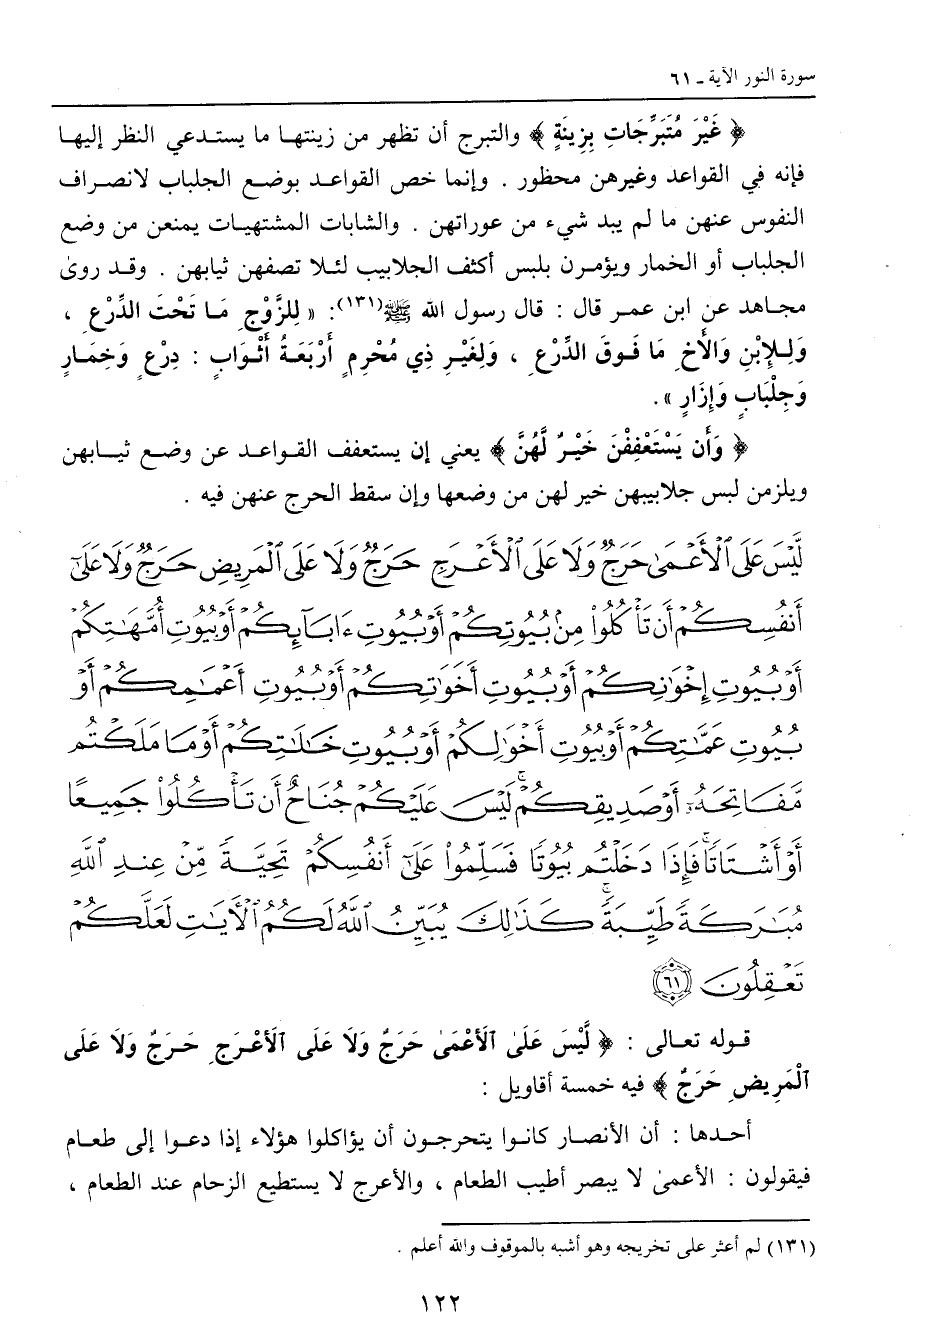 سورة النور الآية ـ ٦١
﴿ غَيْرَ مُتَبَرِّجَاتٍ بِزِينَةٍ ﴾ والتبرج أن تظهر من زينتها ما يستدعي النظر إليها
فإنه في القواعد وغيرهن محظور . وإنما خص القواعد بوضع الجلباب لانصراف
النفوس عنهن ما لم يبد شيء من عوراتهن . والشابات المشتهيات يمنعن من وضع
الجلباب أو الخمار ويؤمرن بلبس أكثف الجلابيب لئلا تصفهن ثيابهن . وقد روىٰ
مجاهد عن ابن عمر قال : قال رسول الله ﷺ(١٣١): « لِلزَّوْجِ مَا تَحْتَ الدِّرْعِ ،
وَلِلإِبْنِ وَالأَخِ مَا فَوقَ الدِّرْعِ ، وَلِغَيْرِ ذِي مُحْرِمٍ أَرْبَعَةُ أَثْوَابٍ : دِرْعٍ وَخِمَارٍ
وَجِلْبَابٍ وَإِزَارٍ » .
﴿ وَأَن يَسْتَعْفِفْنَ خَيْرٌ لَّهُنَّ ﴾ يعني إن يستعفف القواعد عن وضع ثيابهن
ويلزمن لبس جلابيبهن خير لهن من وضعها وإن سقط الحرج عنهن فيه .
لَّيْسَ عَلَى ٱلْأَعْمَىٰ حَرَجٌ وَلَا عَلَى ٱلْأَعْرَجِ حَرَجٌ وَلَا عَلَى ٱلْمَرِيضِ حَرَجٌ وَلَا عَلَىٰٓ
أَنفُسِكُمْ أَن تَأْكُلُوا۟ مِنۢ بُيُوتِكُمْ أَوْ بُيُوتِ ءَابَآئِكُمْ أَوْ بُيُوتِ أُمَّهَٰتِكُمْ
أَوْ بُيُوتِ إِخْوَٰنِكُمْ أَوْ بُيُوتِ أَخَوَٰتِكُمْ أَوْ بُيُوتِ أَعْمَٰمِكُمْ أَوْ
بُيُوتِ عَمَّٰتِكُمْ أَوْ بُيُوتِ أَخْوَٰلِكُمْ أَوْ بُيُوتِ خَٰلَٰتِكُمْ أَوْ مَا مَلَكْتُم
مَّفَاتِحَهُۥٓ أَوْ صَدِيقِكُمْ ۚ لَيْسَ عَلَيْكُمْ جُنَاحٌ أَن تَأْكُلُوا۟ جَمِيعًا
أَوْ أَشْتَاتًا ۚ فَإِذَا دَخَلْتُم بُيُوتًا فَسَلِّمُوا۟ عَلَىٰٓ أَنفُسِكُمْ تَحِيَّةً مِّنْ عِندِ ٱللَّهِ
مُبَٰرَكَةً طَيِّبَةً ۚ كَذَٰلِكَ يُبَيِّنُ ٱللَّهُ لَكُمُ ٱلْأَيَٰتِ لَعَلَّكُمْ
تَعْقِلُونَ ٦١
قوله تعالى : ﴿ لَّيْسَ عَلَىٰ ٱلْأَعْمَىٰ حَرَجٌ وَلَا عَلَى ٱلْأَعْرَجِ حَرَجٌ وَلَا عَلَى
ٱلْمَرِيضِ حَرَجٌ ﴾ فيه خمسة أقاويل :
أحدها : أن الأنصار كانوا يتحرجون أن يؤاكلوا هؤلاء إذا دعوا إلى طعام
فيقولون : الأعمىٰ لا يبصر أطيب الطعام ، والأعرج لا يستطيع الزحام عند الطعام ،
(١٣١) لم أعثر على تخريجه وهو أشبه بالموقوف والله أعلم .
١٢٢